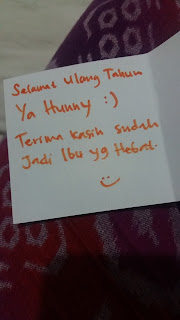 Selamat Ulang Tahun
Ya Hunny :)
Terima kasih sudah
Jadi Ibu yg Hebat.